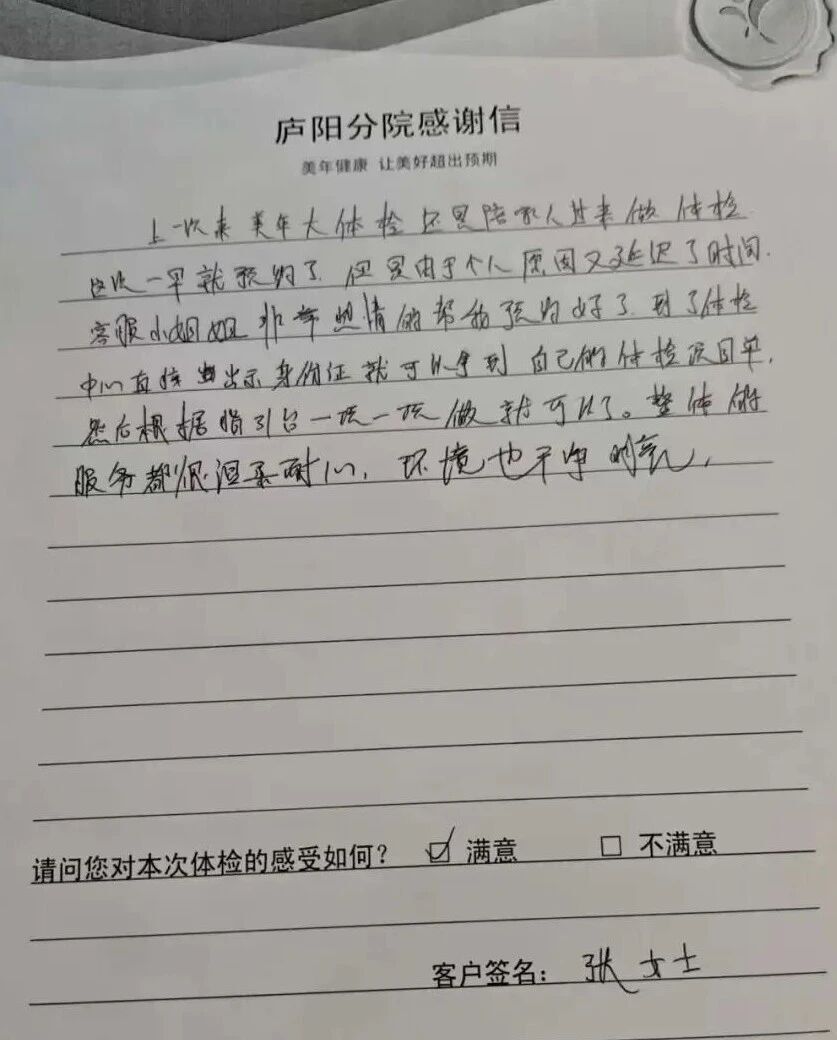 庐阳分院感谢信
美年健康 让美好超出预期
上一次来美年大体检还是陪家人过来做体检
这次一早就预约了.但是由于个人原因又延迟了时间.
客服小姐姐非常热情的帮我预约好了.到了体检
中心直接出示身份证就可以拿到自己的体检项目单,
然后根据指引台一项一项做就可以了。整体的
服务都很温柔耐心,环境也干净明亮,
请问您对本次体检的感受如何? ☑ 满意 □ 不满意
客户签名: 张女士